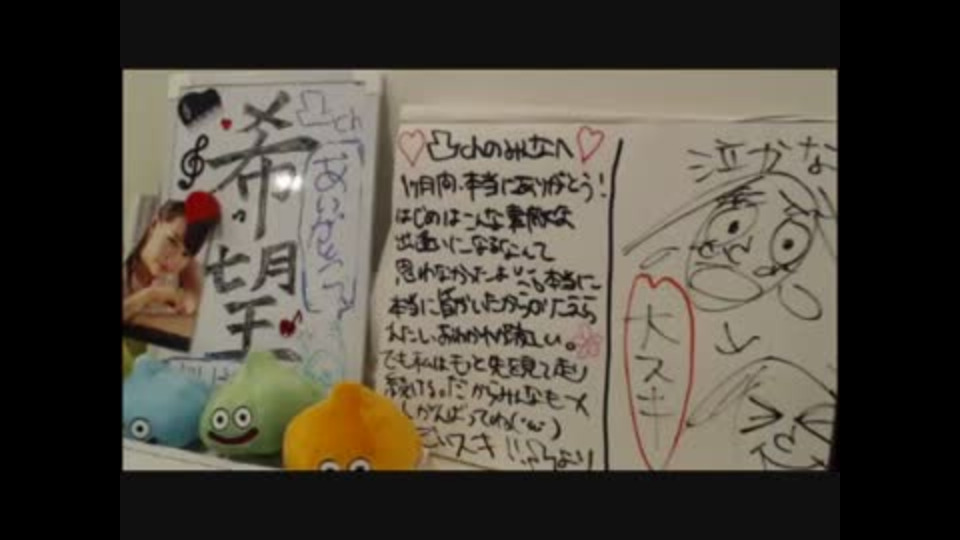 希望
凸ch
ありがとう
凸chのみんなへ
1ヶ月間、本当にありがとう!
はじめはこんな素敵な
出逢いになるなんて
思わなかったよ 本当に
本当に皆がいたから
おわかれが寂しい。
でも私はもっと先を見て走り
続ける。だからみんなも
がんばってね(・ω・)
スキ!!凸より
泣かな
大スキ